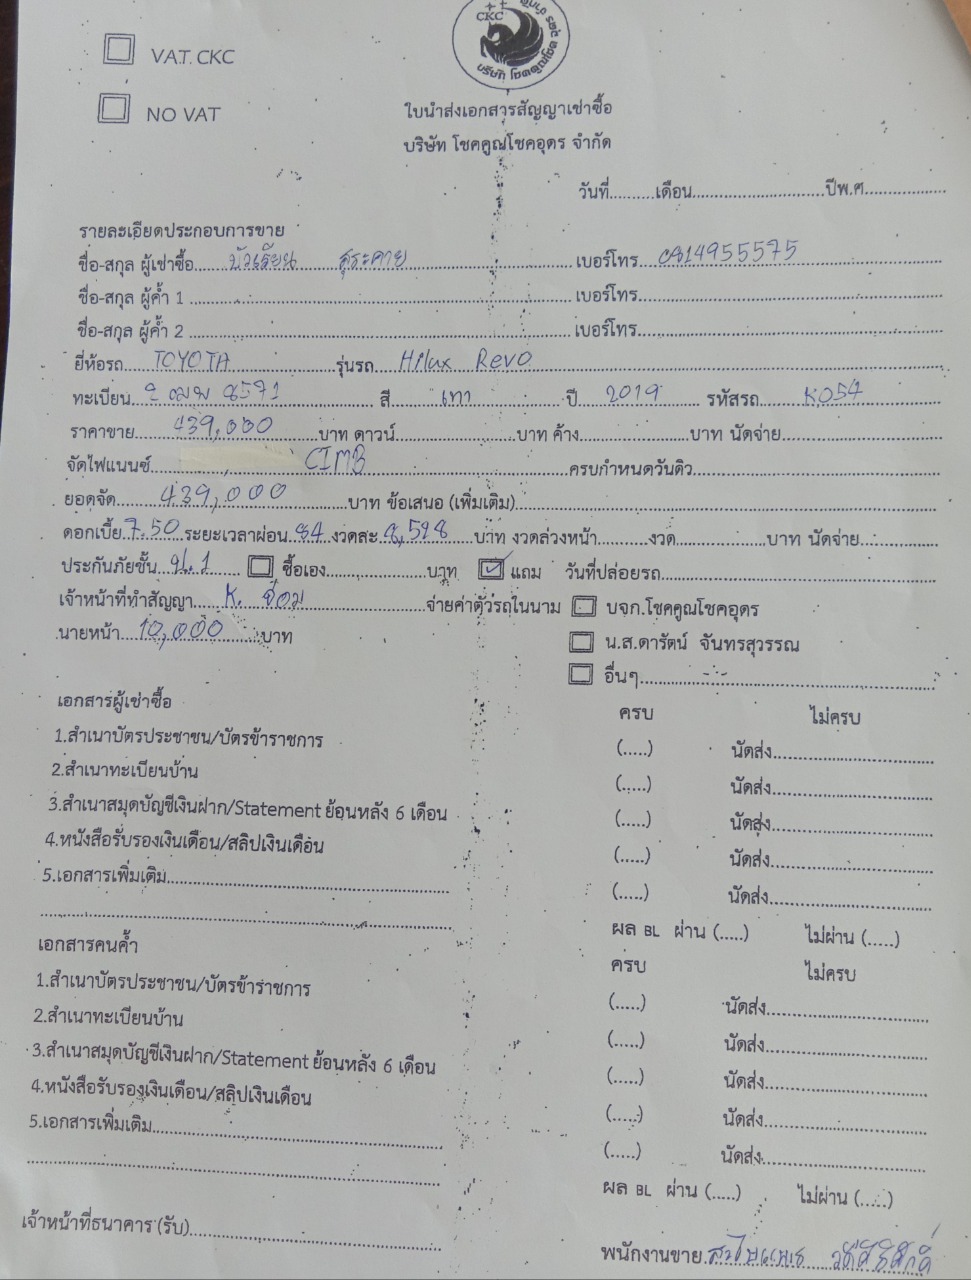 VAT. CKC
CKC
NO VAT
ใบนำส่งเอกสารสัญญาเช่าซื้อ
บริษัท โชคคูณโชคอุดร จำกัด
วันที่..........เดือน..............................ปีพ.ศ..................
รายละเอียดประกอบการขาย
ชื่อ-สกุล ผู้เช่าซื้อ...... บัวเรียน สุระคาย ...... เบอร์โทร. 0814955575
ชื่อ-สกุล ผู้ค้ำ 1 ...... เบอร์โทร......
ชื่อ-สกุล ผู้ค้ำ 2 ...... เบอร์โทร......
ยี่ห้อรถ...... TOYOTA ...... รุ่นรถ.... Hilux Revo ......
ทะเบียน. 2 ฒฆ 8571 ...... สี ...... เทา ...... ปี ...... 2019 ...... รหัสรถ...... K054
ราคาขาย...... 439,000 ......บาท ดาวน์......บาท ค้าง......บาท นัดจ่าย......
จัดไฟแนนซ์...... CIMB ......ครบกำหนดวันดิว......
ยอดจัด...... 439,000 ......บาท ข้อเสนอ (เพิ่มเติม)......
ดอกเบี้ย 7.50 ระยะเวลาผ่อน 84 งวดละ 8,528 บาท งวดล่วงหน้า......งวด......บาท นัดจ่าย......
ประกันภัยชั้น ป.1 ซื้อเอง......บาท แถม วันที่ปล่อยรถ......
เจ้าหน้าที่ทำสัญญา...... K. ......จ่ายค่าตัวรถในนาม บจก.โชคคูณโชคอุดร
นายหน้า 10,000 บาท
น.ส.ดารัตน์ จันทรสุวรรณ
อื่นๆ......
เอกสารผู้เช่าซื้อ ครบ ไม่ครบ
1.สำเนาบัตรประชาชน/บัตรข้าราชการ (.....) นัดส่ง......
2.สำเนาทะเบียนบ้าน (.....) นัดส่ง......
3.สำเนาสมุดบัญชีเงินฝาก/Statement ย้อนหลัง 6 เดือน (.....) นัดส่ง......
4.หนังสือรับรองเงินเดือน/สลิปเงินเดือน (.....) นัดส่ง......
5.เอกสารเพิ่มเติม...... (.....) นัดส่ง......
ผล BL ผ่าน (.....) ไม่ผ่าน (.....)
เอกสารคนค้ำ ครบ ไม่ครบ
1.สำเนาบัตรประชาชน/บัตรข้าราชการ (.....) นัดส่ง......
2.สำเนาทะเบียนบ้าน (.....) นัดส่ง......
3.สำเนาสมุดบัญชีเงินฝาก/Statement ย้อนหลัง 6 เดือน (.....) นัดส่ง......
4.หนังสือรับรองเงินเดือน/สลิปเงินเดือน (.....) นัดส่ง......
5.เอกสารเพิ่มเติม...... (.....) นัดส่ง......
ผล BL ผ่าน (.....) ไม่ผ่าน (.....)
เจ้าหน้าที่ธนาคาร (รับ)......
พนักงานขาย.